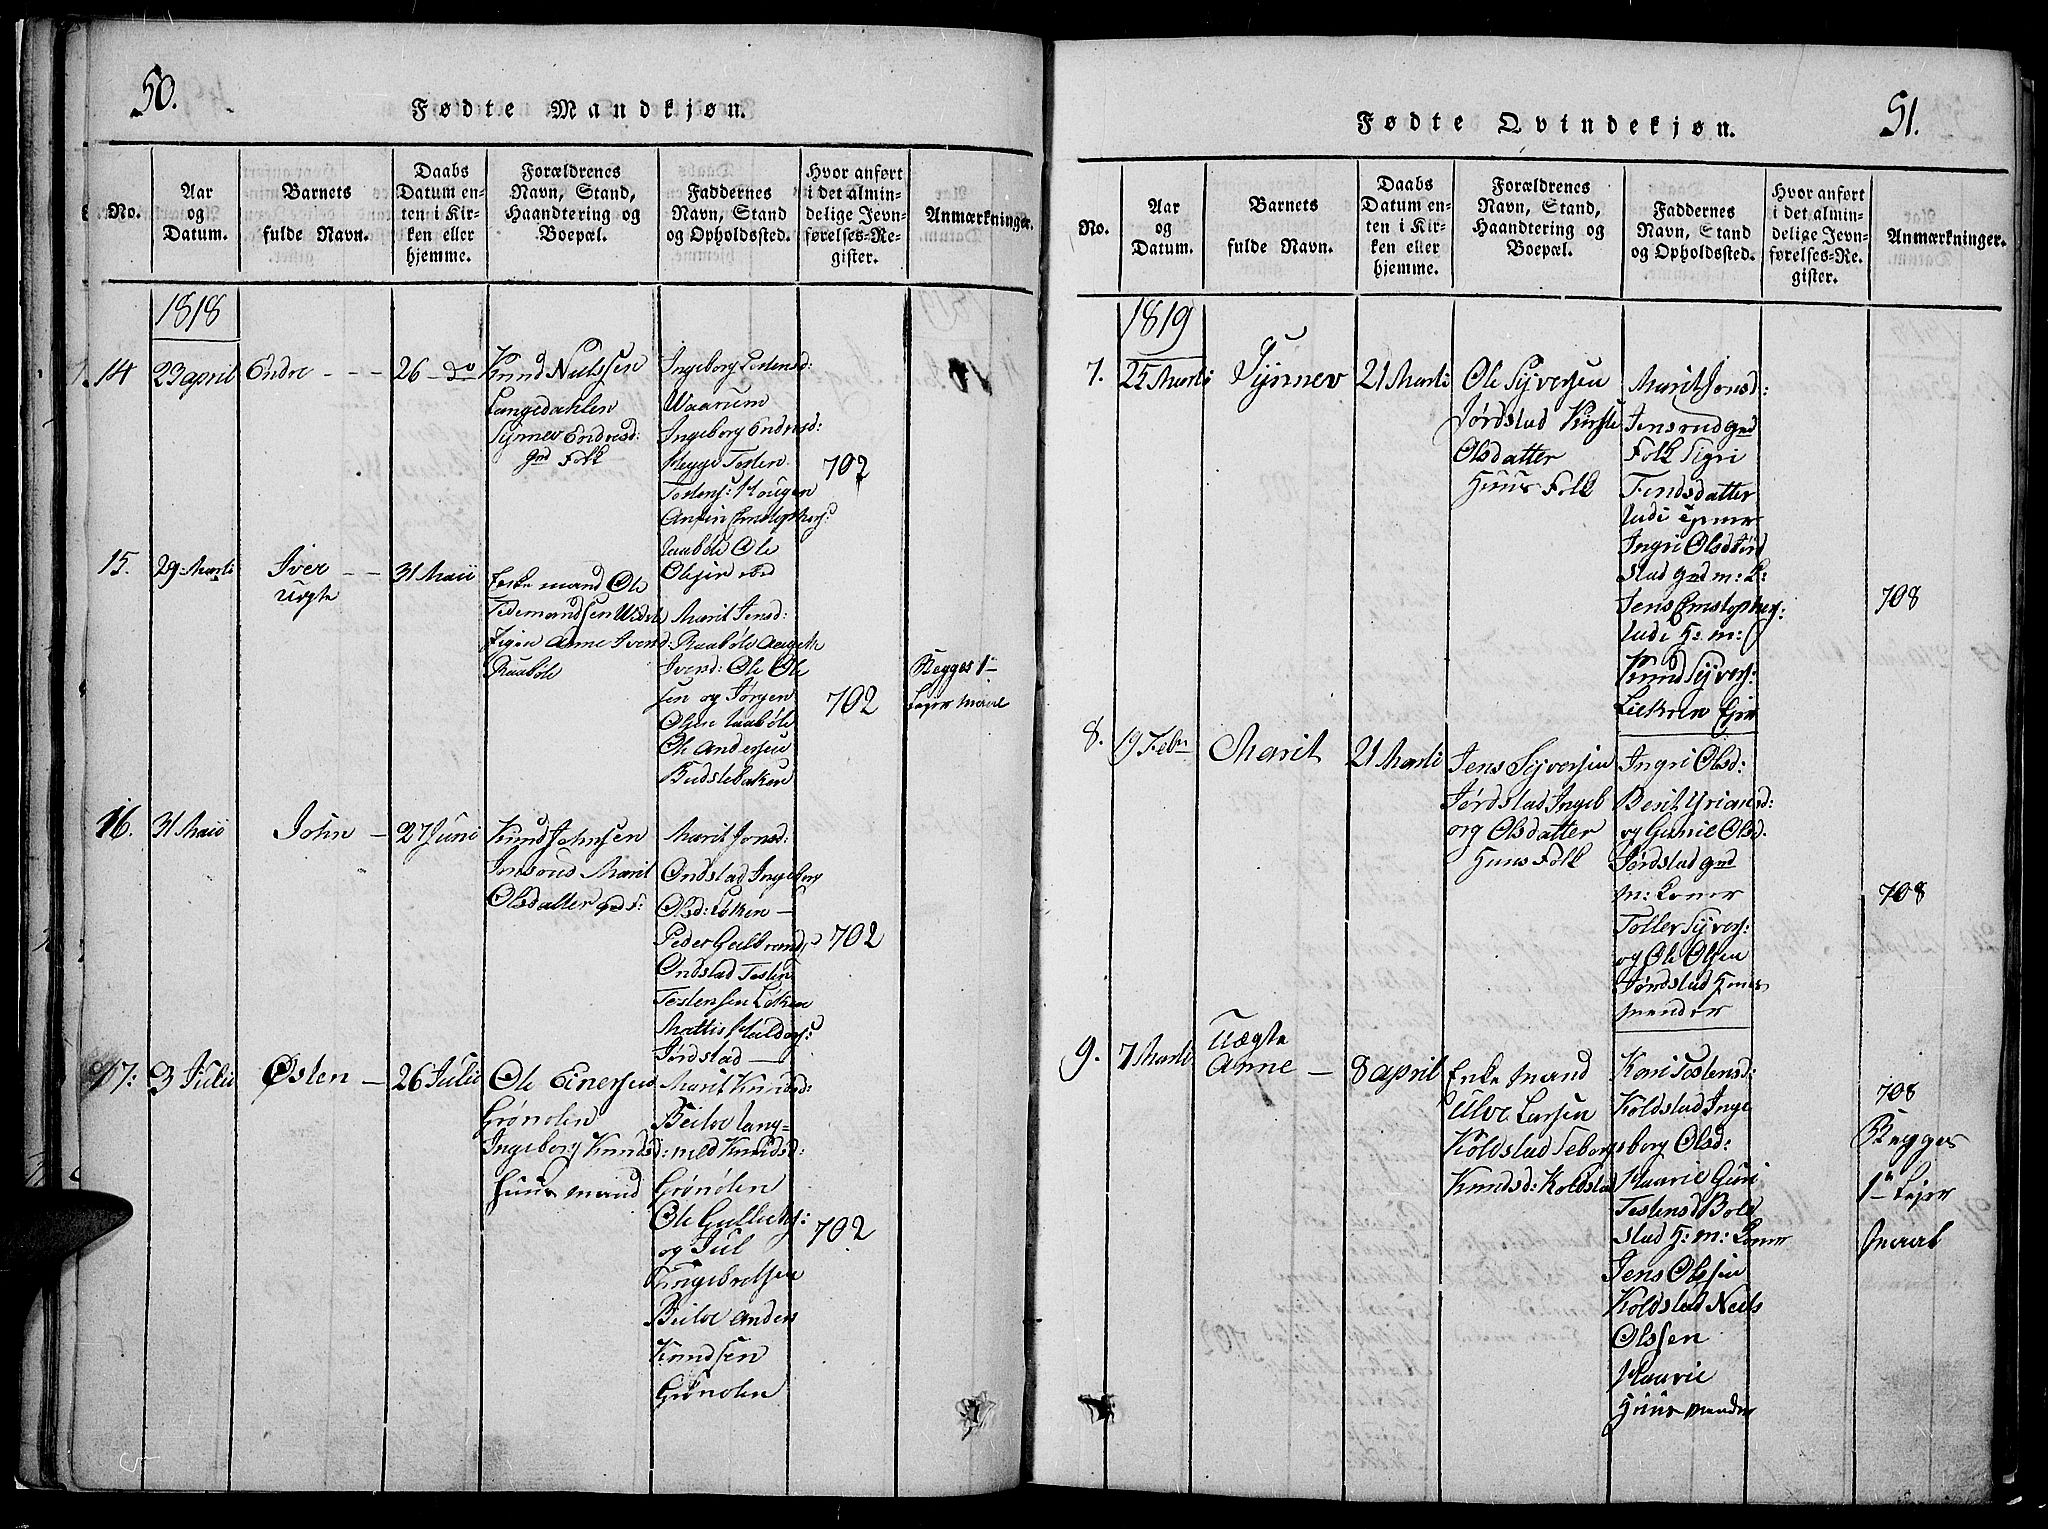 50.
Fødte Mandkjøn.
No.
Aar
og
Datum.
Barnets
fulde Navn.
Daabs
Datum en-
ten i Kir-
ken eller
hjemme.
Forældrenes
Navn, Stand,
Haandtering og
Boepæl.
Faddernes
Navn, Stand
og Opholdssted.
Hvor anført
i det almin-
delige Jevn-
førelses-Re-
gister.
Anmærkninger.
1818
14
23 april
Endre
26 do
Knud Nielssen
Langedahlen
Synnev Endresd:
grd Folk
Ingeborg Tostensd:
Waarum
Ingeborg Endresd:
Hegge Tosten
Tostens: Hougen
702
15.
29 Marti
Iver
Uægte
31 Maii
Enke mand Ole
Tidemandsen
Anne Iversd:
Raabøle
Marit Jensd:
Raabøle
Iversd: Ole Ole
sen og Jørgen
Olsen
Ole Andersen
Budslebaken
702
Begges 1te
Lejer maal
16.
31 Maii
John
27 Juni
Knud Johnsen
Marit
Olsdatter grd F:
Marit Jonsd:
Ondstad Ingeborg
Olsd: Løken
Peder Gulbrands
Ondstad Tosten
Tostensen Løken
Mattis Haldors:
Jørdstad
702
17:
3 Julii
Østen
26 Julii
Ole Einersen
Grønolen
Ingeborg Knudsd:
Huus mand
Marit Knudsd:
Beitoe
Knudsd:
Grønolen
Ole Gulliks:
og Juul
Ingebretsen
Beitoe Anders
Knudsen
Grønolen
702
51.
Fødte Qvindekjøn.
No.
Aar
og
Datum.
Barnets
fulde Navn.
Daabs
Datum en-
ten i Kir-
ken eller
hjemme.
Forældrenes
Navn, Stand,
Haandtering og
Boepæl.
Faddernes
Navn, Stand
og Opholdssted.
Hvor anført
i det almin-
delige Jevn-
førelses-Re-
gister.
Anmærkninger.
1819
7.
25 Marti
Synnev
21 Marti
Ole Syversen
Jørdstad Kirste
Olsdatter
Huus Folk
Marit Jonsd:
Jensrud grd
Folk Sigri
Ingri Olsd Jørd
stad grd m: K:
Jens Cristophers:
H: m:
Knud Syvers:
708
8.
19 Febr
Marit
21 Marti
Jens Syversen
Jørdstad Ingeb
org Olsdatter
Huus Folk
Ingri Olsd:
Berit
og Gunil Olsd.
Jørdstad grd
m: Koner
Toller Syvers:
og Ole Olsen
Jørdstad Huus
mender
708
9.
7 Marti
Uægte
Anne
8 april
Enke mand
Ulve Larsen
Koldstad Seborg
Knudsd: Koldstad
Kari Tostensd:
Koldstad Inge
borg Olsd:
Haavrie Guri
Tostensd Bold
stad H: m: Koner
Jens Olssen
Koldstad Niels
Olssen
Haavrie
Huusmender
708
Begges
1te Lejer
maal